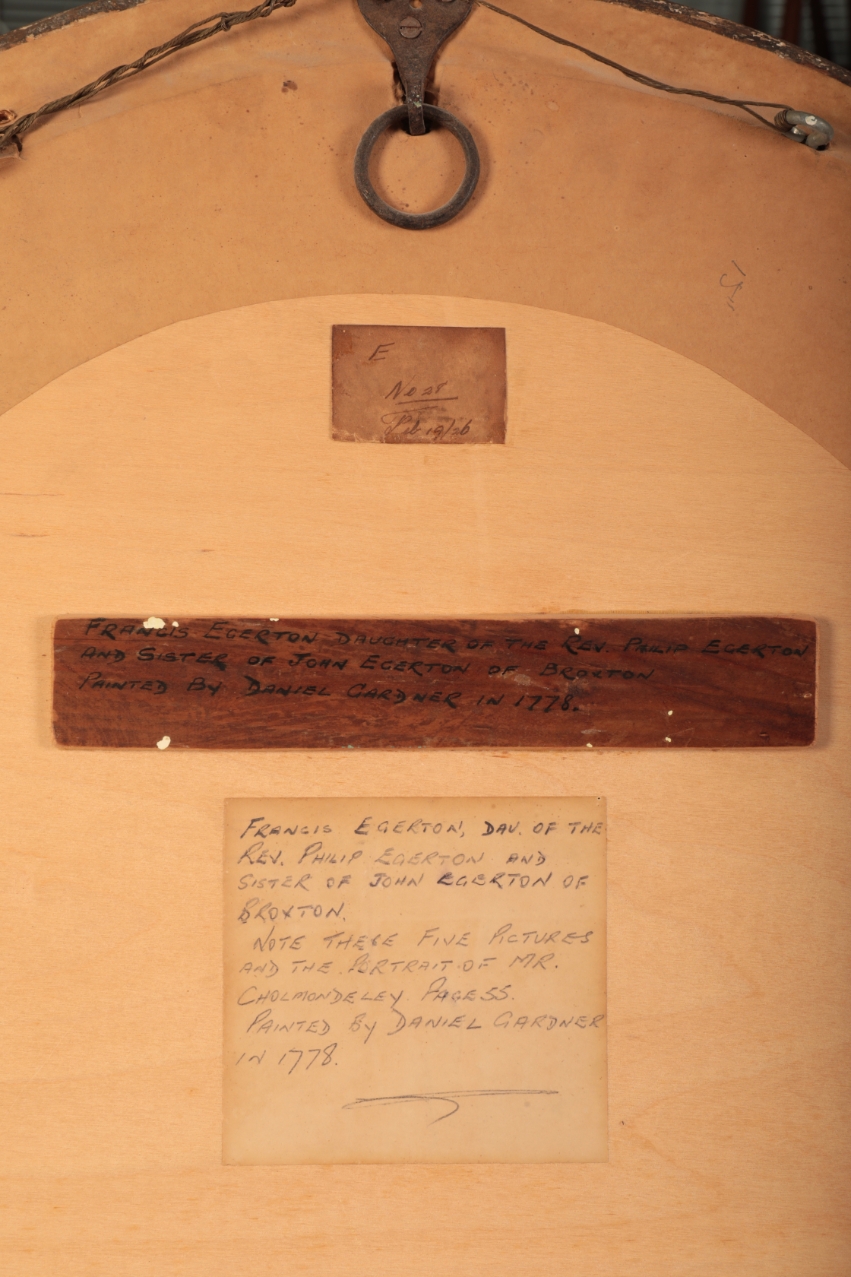 E
No 28
Feb 19/26
FRANCIS EGERTON DAUGHTER OF THE REV. PHILIP EGERTON
AND SISTER OF JOHN EGERTON OF BROXTON
PAINTED BY DANIEL GARDNER IN 1778.
FRANCIS EGERTON, DAU. OF THE
REV. PHILIP EGERTON AND
SISTER OF JOHN EGERTON OF
BROXTON.
NOTE THESE FIVE PICTURES
AND THE PORTRAIT OF MR.
CHOLMONDELEY PAGE 55.
PAINTED BY DANIEL GARDNER
IN 1778.